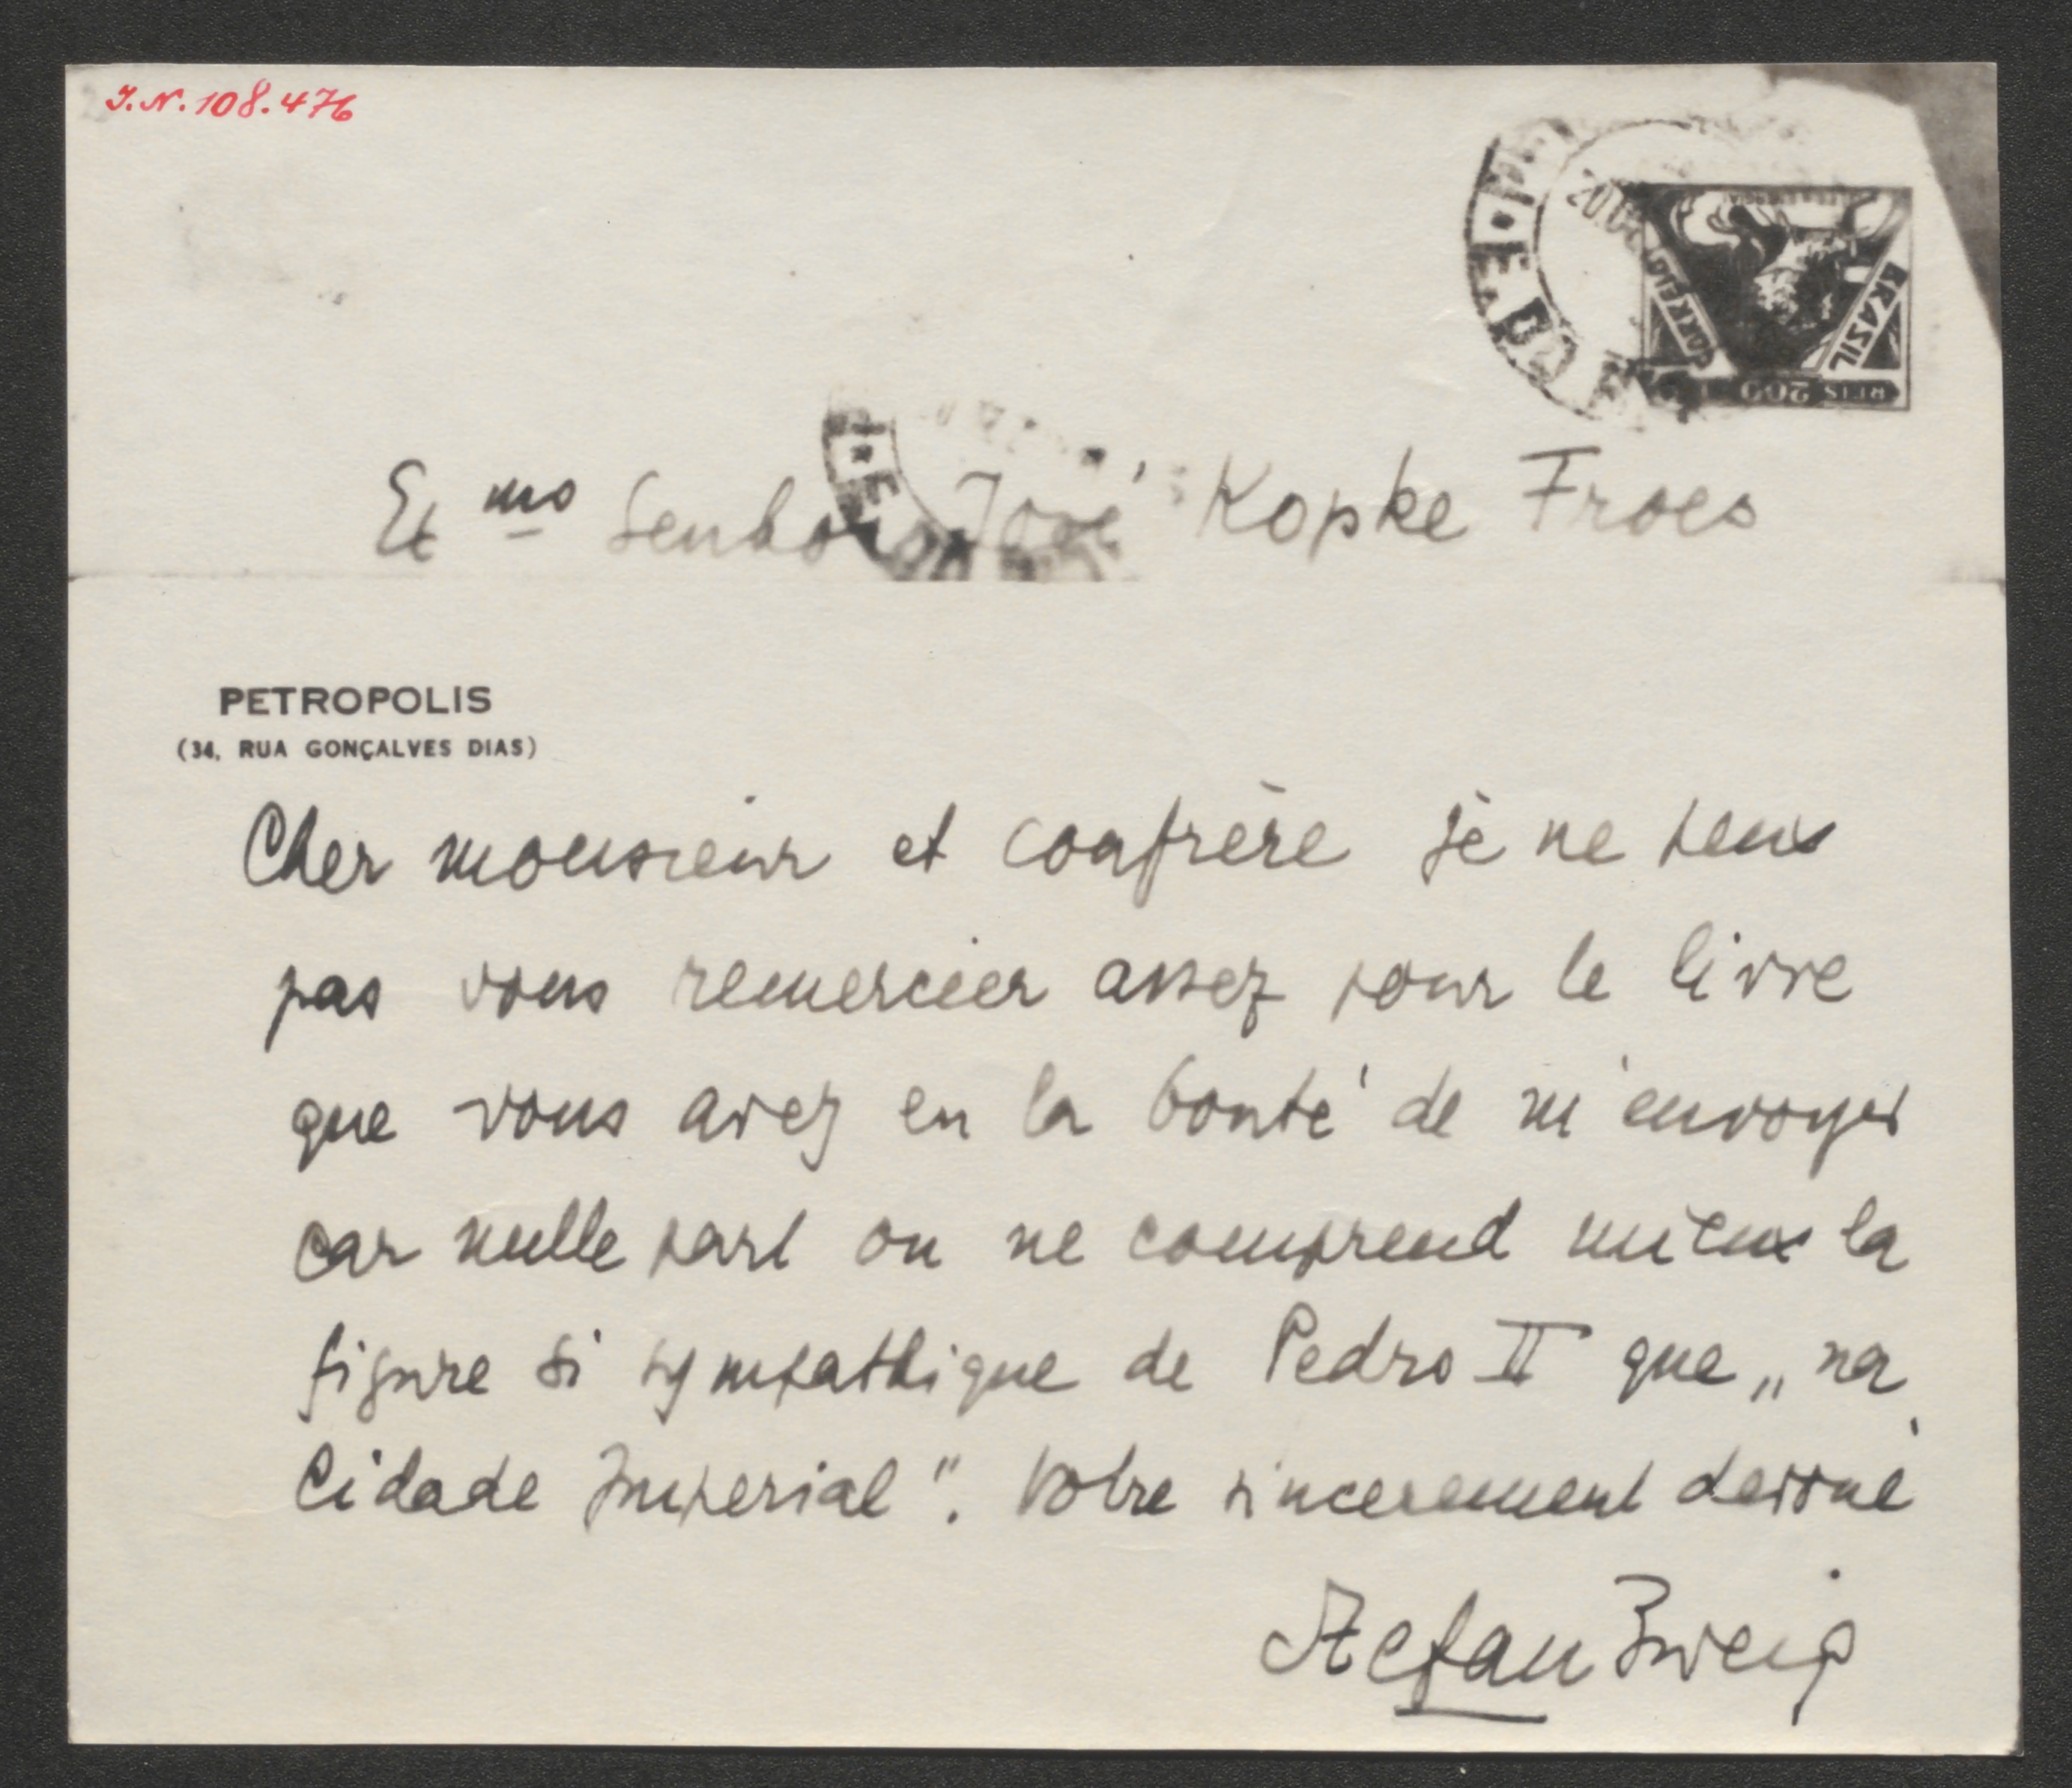 I.N. 108.476
20
BRASIL
CORREIO
REIS 200
Exmo Senhor José Kopke Froes
PETROPOLIS
(34, RUA GONÇALVES DIAS)
Cher monsieur et confrère je ne peux
pas vous remercier assez pour le livre
que vous avez eu la bonté de m'envoyer
car nulle part on ne comprend mieux la
figure si sympathique de Pedro II que „na
Cidade Imperial". Votre sincerement devoué
Stefan Zweig